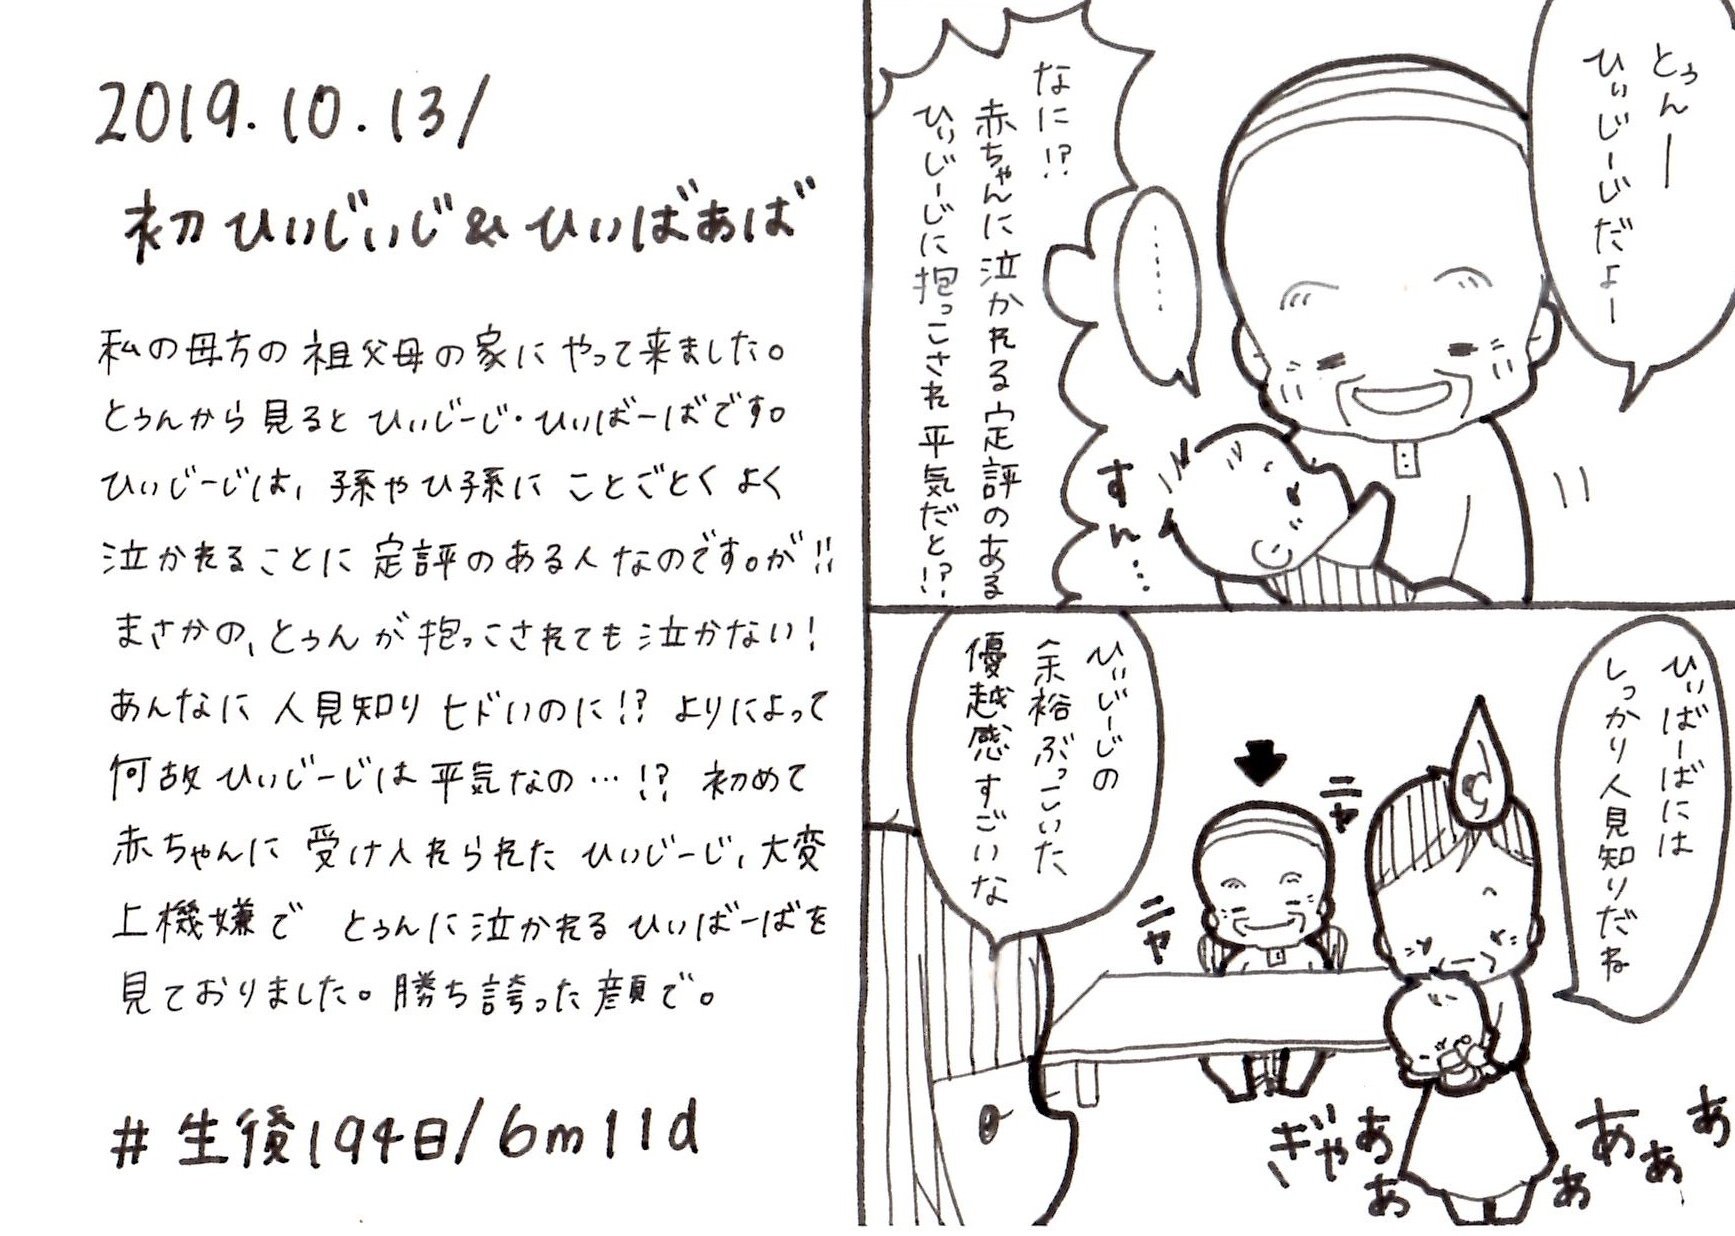 2019.10.13/
初ひぃじぃじ&ひぃばぁば
私の母方の祖父母の家にやって来ました。
とぅんから見るとひぃじーじ・ひぃばーばです。
ひぃじーじは、孫やひ孫にことごとくよく
泣かれることに定評のある人なのです。が!!
まさかの、とぅんが抱っこされても泣かない!
あんなに人見知りヒドいのに!?よりによって
何故ひぃじーじは平気なの…!?初めて
赤ちゃんに受け入れられたひぃじーじ、大変
上機嫌でとぅんに泣かれるひぃばーばを
見ておりました。勝ち誇った顔で。
#生後194日/6m11d
とぅんー
ひぃじーじだよー
………
なに!?
赤ちゃんに泣かれる定評のある
ひぃじーじに抱っこされ平気だと!?
すん…
ひぃばーばには
しっかり人見知りだね
ひぃじーじの
余裕ぶっこいた
優越感すごいな
ニヤ
ニヤ
ぎゃああぁあぁあ